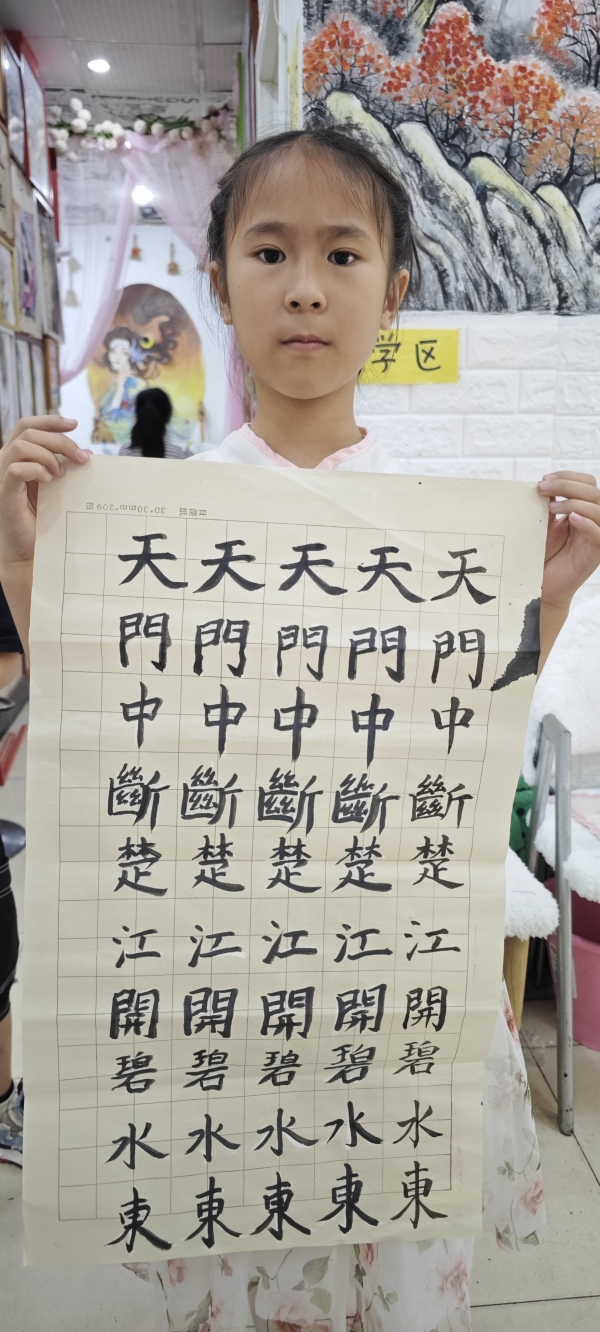 学区
30*30mm*209
天門中斷楚江開碧水東
天門中斷楚江開碧水東
天門中斷楚江開碧水東
天門中斷楚江開碧水東
天門中斷楚江開碧水東